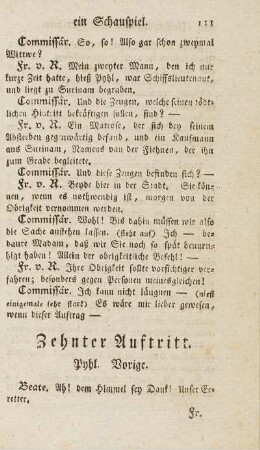 ein Schauspiel. 111
Commissär. So, so! Also gar schon zweymal
Wittwe?
Fr. v. R. Mein zweyter Mann, den ich nur
kurze Zeit hatte, hieß Pyhl, war Schiffslieutenant,
und liegt zu Surinam begraben.
Commissär. Und die Zeugen, welche seinen tödt-
lichen Hintritt bekräftigen sollen, sind? —
Fr. v. R. Ein Matrose, der sich bey seinem
Absterben gegenwärtig befand, und ein Kaufmann
aus Surinam, Namens van der Fiehnen, der ihn
zum Grabe begleitete.
Commissär. Und diese Zeugen befinden sich? —
Fr. v. R. Beyde hier in der Stadt. Sie kön-
nen, wenn es nothwendig ist, morgen von der
Obrigkeit vernommen werden.
Commissär. Wohl! Bis dahin müssen wir also
die Sache anstehen lassen. (steht auf) Ich — be-
daure Madam, daß wir Sie noch so spät beunru-
higt haben! Allein der obrigkeitliche Befehl! —
Fr. v. R. Ihre Obrigkeit sollte vorsichtiger ver-
fahren; besonders gegen Personen meinesgleichen!
Commissär. Ich kann nicht läugnen — (niest
einigemale sehr stark) Es wäre mir lieber gewesen,
wenn dieser Auftrag —
Zehnter Auftritt.
Pyhl. Vorige.
Beate. Ah! dem Himmel sey Dank! Unser Er-
retter.
Fr.